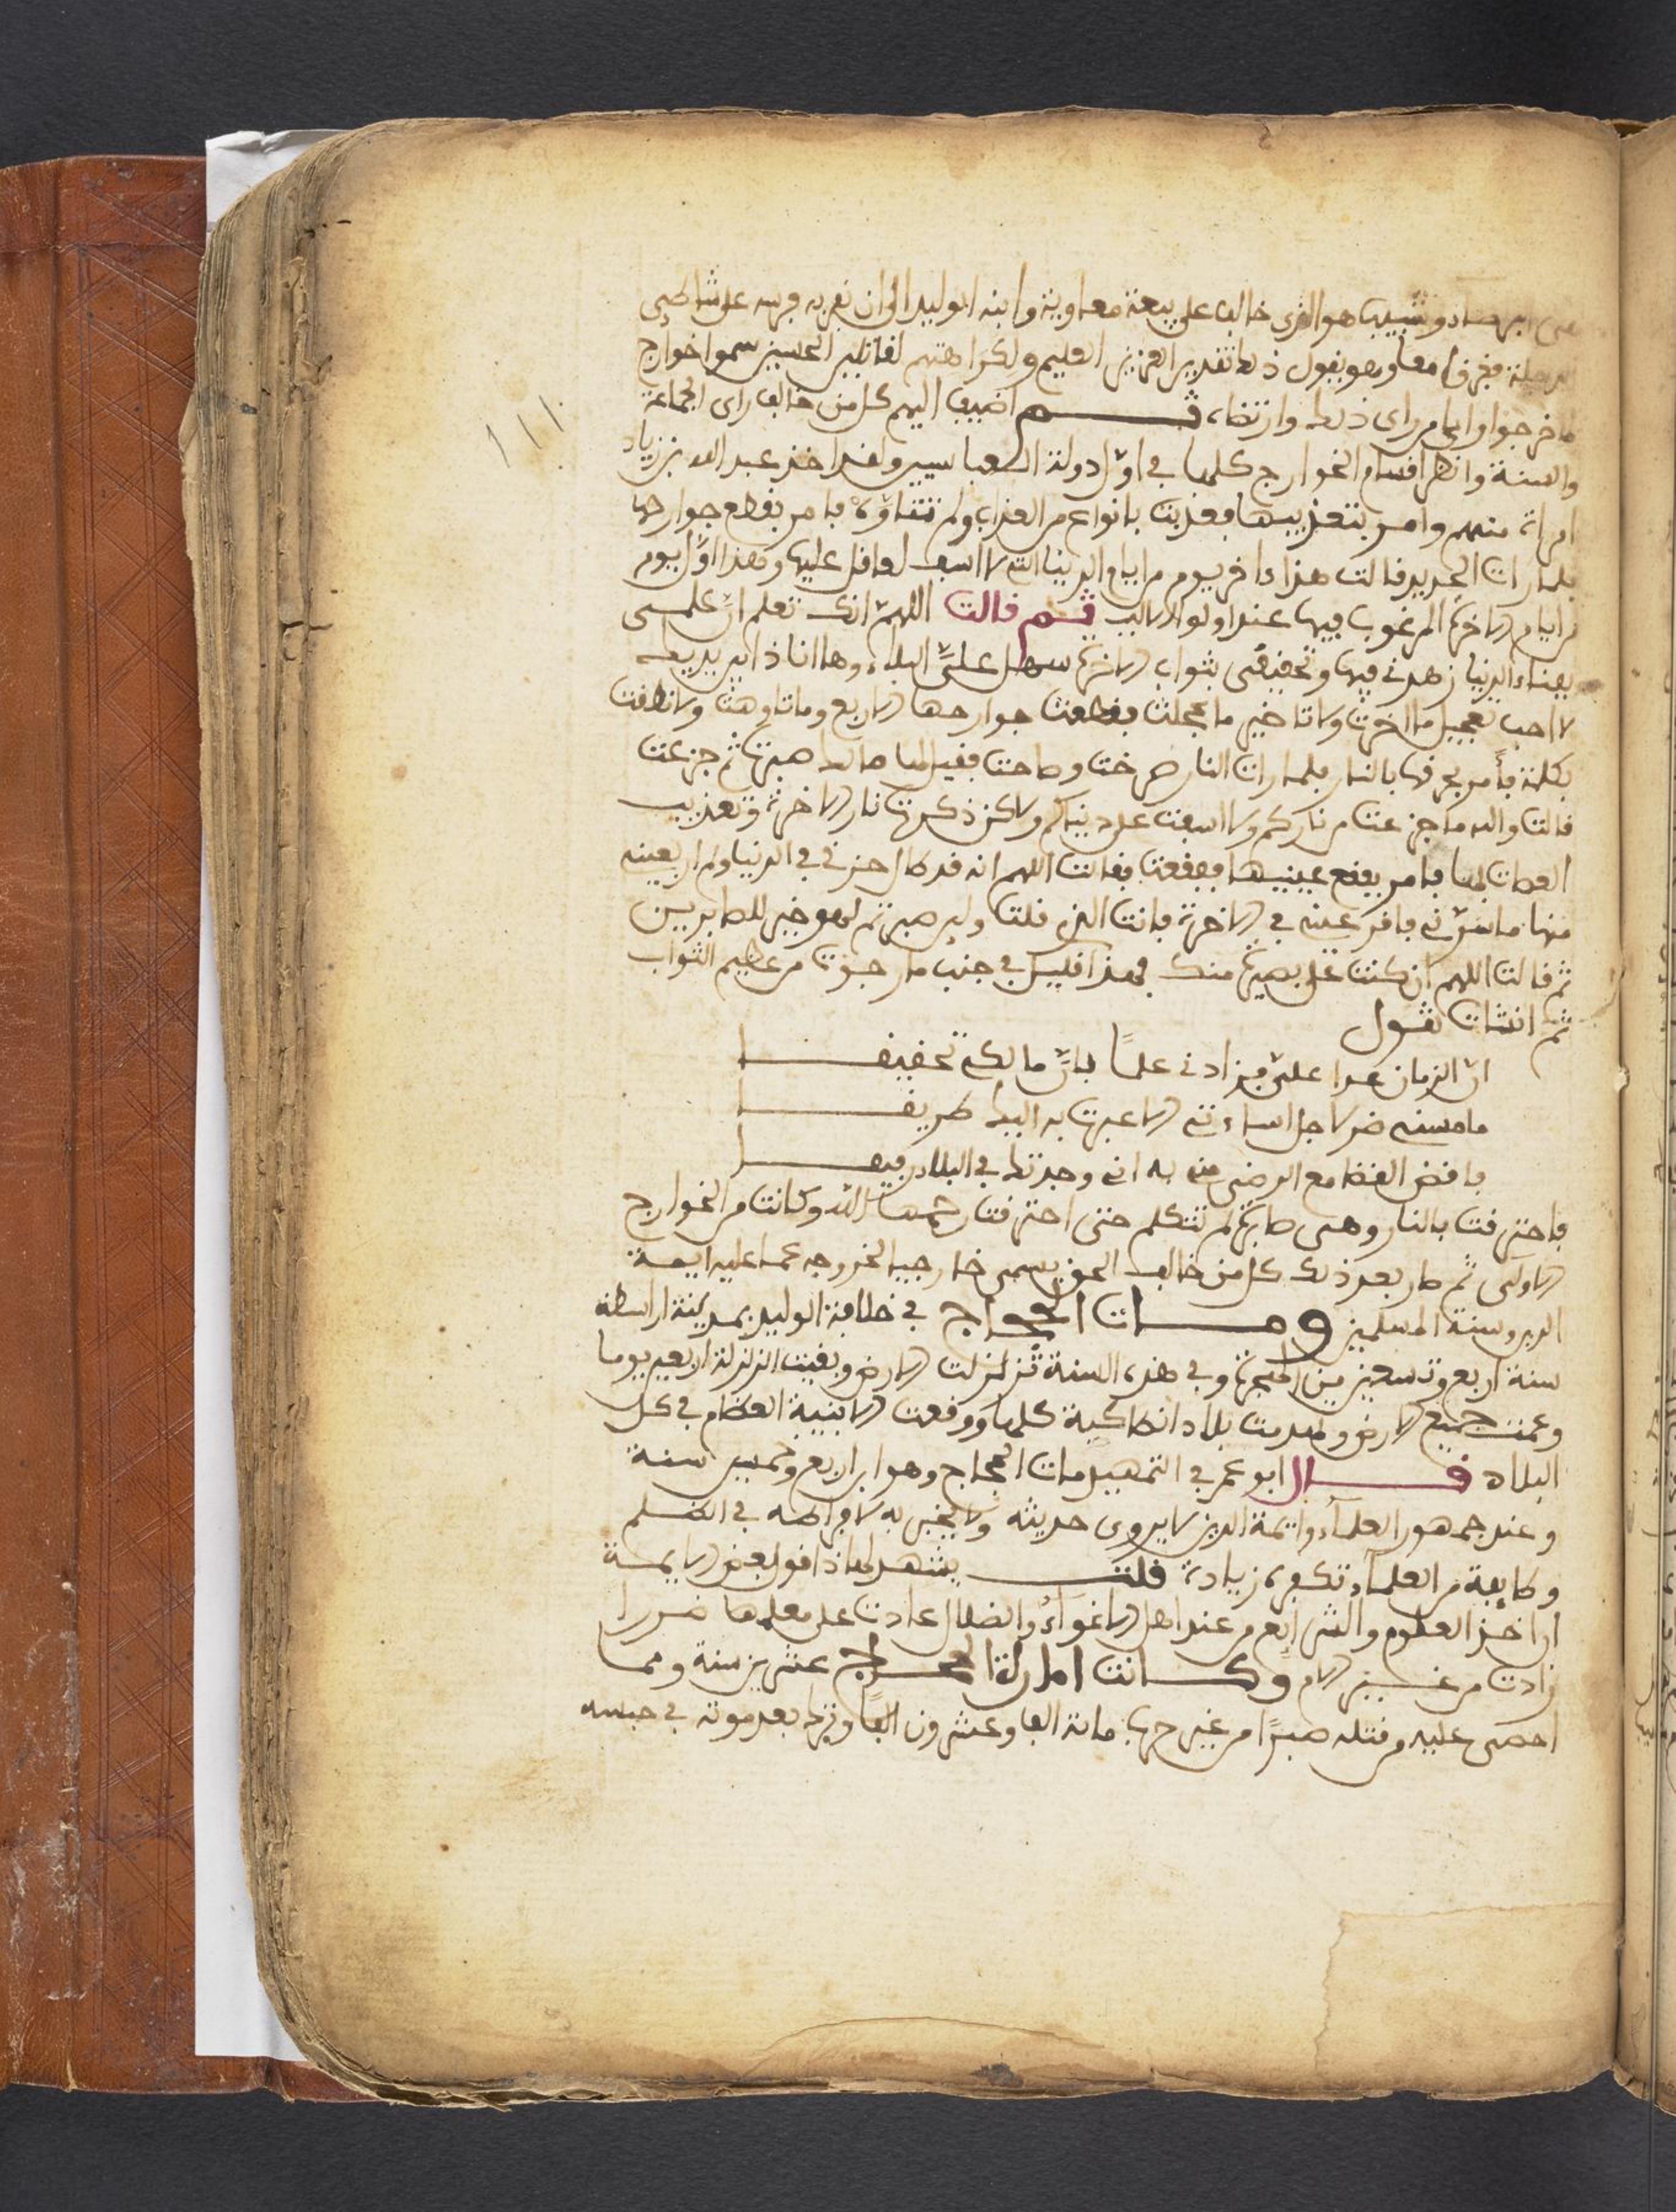 وشبيب هو الذي خالف على بيعة معاوية وابنه الوليد الى ان نفر به فرسه على شاطئ
فغرق وهو يقول ذلك تقدير العزيز العليم ولكراهتهم سموا خوارج
اضيف اليهم كل من خالف راى الجماعة
١١١
والسنة وانظر اقسام الخوارج كلها في اول دولة العباسيين ولقد اخذ عبد الله بن زياد
امراة منهم وامر بتعذيبها فعذبت بانواع من العذاب ولم تتاوه فامر بقطع جوارحها
فلما رات الحديد قالت هذا ءاخر يوم من ايام الدنيا التي لا اسف لعاقل عليها وهذا اول يوم
من ايام الاخرة المرغوب فيها عند اولو الالباب ثم قالت اللهم انك تعلم ان علمي
بفناء الدنيا زهدني فيها وتحقيقي بثواب الاخرة سهل علي البلاء وها انا ذا بين يديك
لا احب تعجيل ما اخرت ولا تاخير ما عجلت فقطعت جوارحها الاربع وما تاوهت ولا نطقت
بكلمة فأمر بحرقها بالنار فلما رات النار صرخت وصاحت فقيل لها ما لك صبرت ثم جزعت
قالت والله ما جزعت من ناركم ولا اسفت على دنياكم ولاكن ذكرت نار الاخرة وتعذيب
العصات بها فامر بفقع عينيها ففقعت فقالت اللهم انه قد طال حزني في الدنيا ولم ار بعينه
منها ما يسرني فاقر عيني في الاخرة فانت الذي قلت ولين صبرتم لهو خير للصابرين
ثم قالت اللهم ان كنت على بصيرة منك فهذا قليل في جنب ما رجوت من عظيم الثواب
ثم انشات تقول
ان الزمان عدا علي فزادني علما بان ما لكم تحقيقا
ما مسني ضر لاجل اساءتي الا عبرت به اليك طريقا
فاقض القضا مع الرضى مني به اني وجدتك في البلاء رفيقا
فاحترقت بالنار وهي صابرة لم تتكلم حتى احترقت رحمها الله وكانت من الخوارج
الاولى ثم صار بعد ذلك كل من خالف الحق يسمى خارجيا لخروجه عما عليه ايمة
الدين وسنة المسلمين ومات الحجاج في خلافة الوليد بمدينة واسطه
سنة اربع وتسعين من الهجرة وفي هذه السنة تزلزلت الارض وبقيت الزلزلة اربعين يوما
وعمت جميع الارض وهدمت بلاد انطاكية كلها ووقعت الابنية العظام في كل
البلاد قال ابو عمر في التمهيد مات الحجاج وهو ابن اربع وخمسين سنة
وعند جمهور العلماء وايمة الدين لا يروى حديثه ولا يخبر به لافراطه في الظلم
وطايفة من العلماء تكفره زيادة قلت يشهد لهاذا قول بعض الايمة
ان اخذ العلوم والشرايع من عند اهل الاغواء والضلال عادت على معلمها ضررا
زادت من غير الام وكانت امارة الحجاج عشرين سنة ومما
احصى عليه من قتله صبرا من غير حرب مائة الف وعشرون الفا وترك بعد موته في حبسه